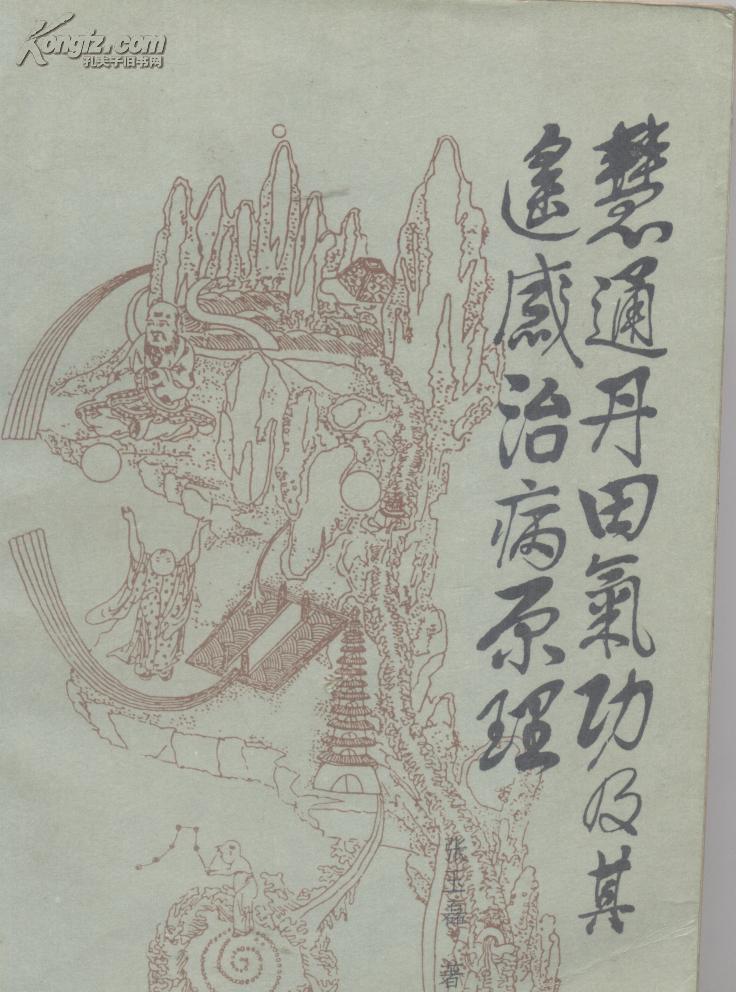 Kongfz.com
孔夫子旧书网
慧通丹田氣功及其
遙感治病原理
张玉磊 著